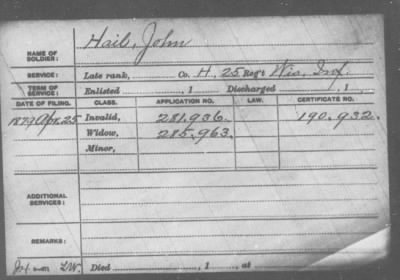 NAME OF SOLDIER: Haib, John
SERVICE: Late rank, Co. H, 25 Reg't Wis. Inf.
TERM OF SERVICE: Enlisted , 1 Discharged , 1
DATE OF FILING. CLASS. APPLICATION NO. LAW. CERTIFICATE NO.
1879 Apr. 25 Invalid, 281.936. 190.932.
Widow, 285.963.
Minor,
ADDITIONAL SERVICES:
REMARKS:
Died , 1 , at